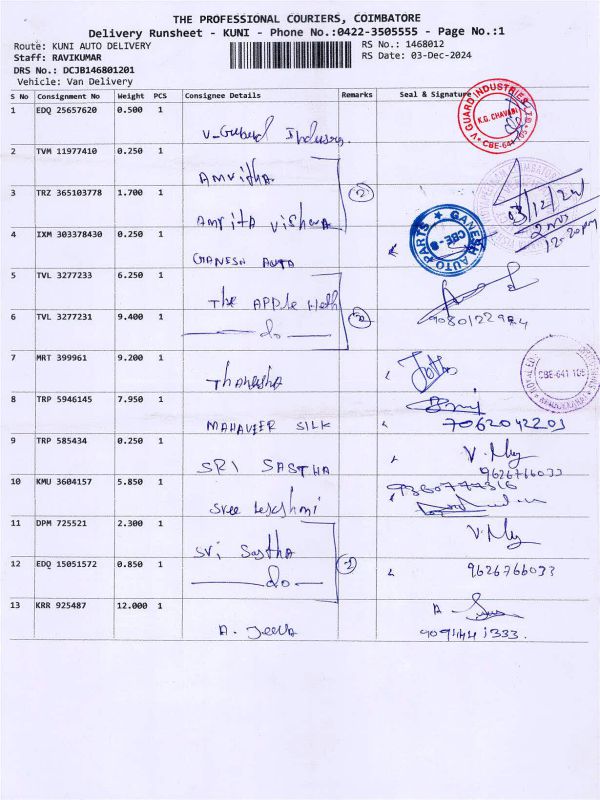 THE PROFESSIONAL COURIERS, COIMBATORE
Delivery Runsheet - KUNI - Phone No.:0422-3505555 - Page No.:1
Route: KUNI AUTO DELIVERY RS No.: 1468012
Staff: RAVIKUMAR RS Date: 03-Dec-2024
DRS No.: DCJB146801201
Vehicle: Van Delivery
S No Consignment No Weight PCS Consignee Details Remarks Seal & Signature
1 EDQ 25657620 0.500 1
V-Guard V GUARD INDUSTRIES K.G. CHAVADI CBE-641 105
2 TVM 11977410 0.250 1
Amritha
3 TRZ 365103778 1.700 1 2 03/12/24
Amrita Vishwa 12-20pm
4 IXM 303378430 0.250 1 GANESH AUTO PARTS CBE-8
GANESH AUTO
5 TVL 3277233 6.250 1
The APPle
6 TVL 3277231 9.400 1 2
do
7 MRT 399961 9.200 1 CBE-641 105
8 TRP 5946145 7.950 1
MAHAVEER SILK 7062042201
9 TRP 585434 0.250 1
SRI SASTHA 9626766033
10 KMU 3604157 5.850 1
Sree
11 DPM 725521 2.300 1
Sri Sastha
12 EDQ 15051572 0.850 1 2 9626766033
do
13 KRR 925487 12.000 1
A. Jeeva